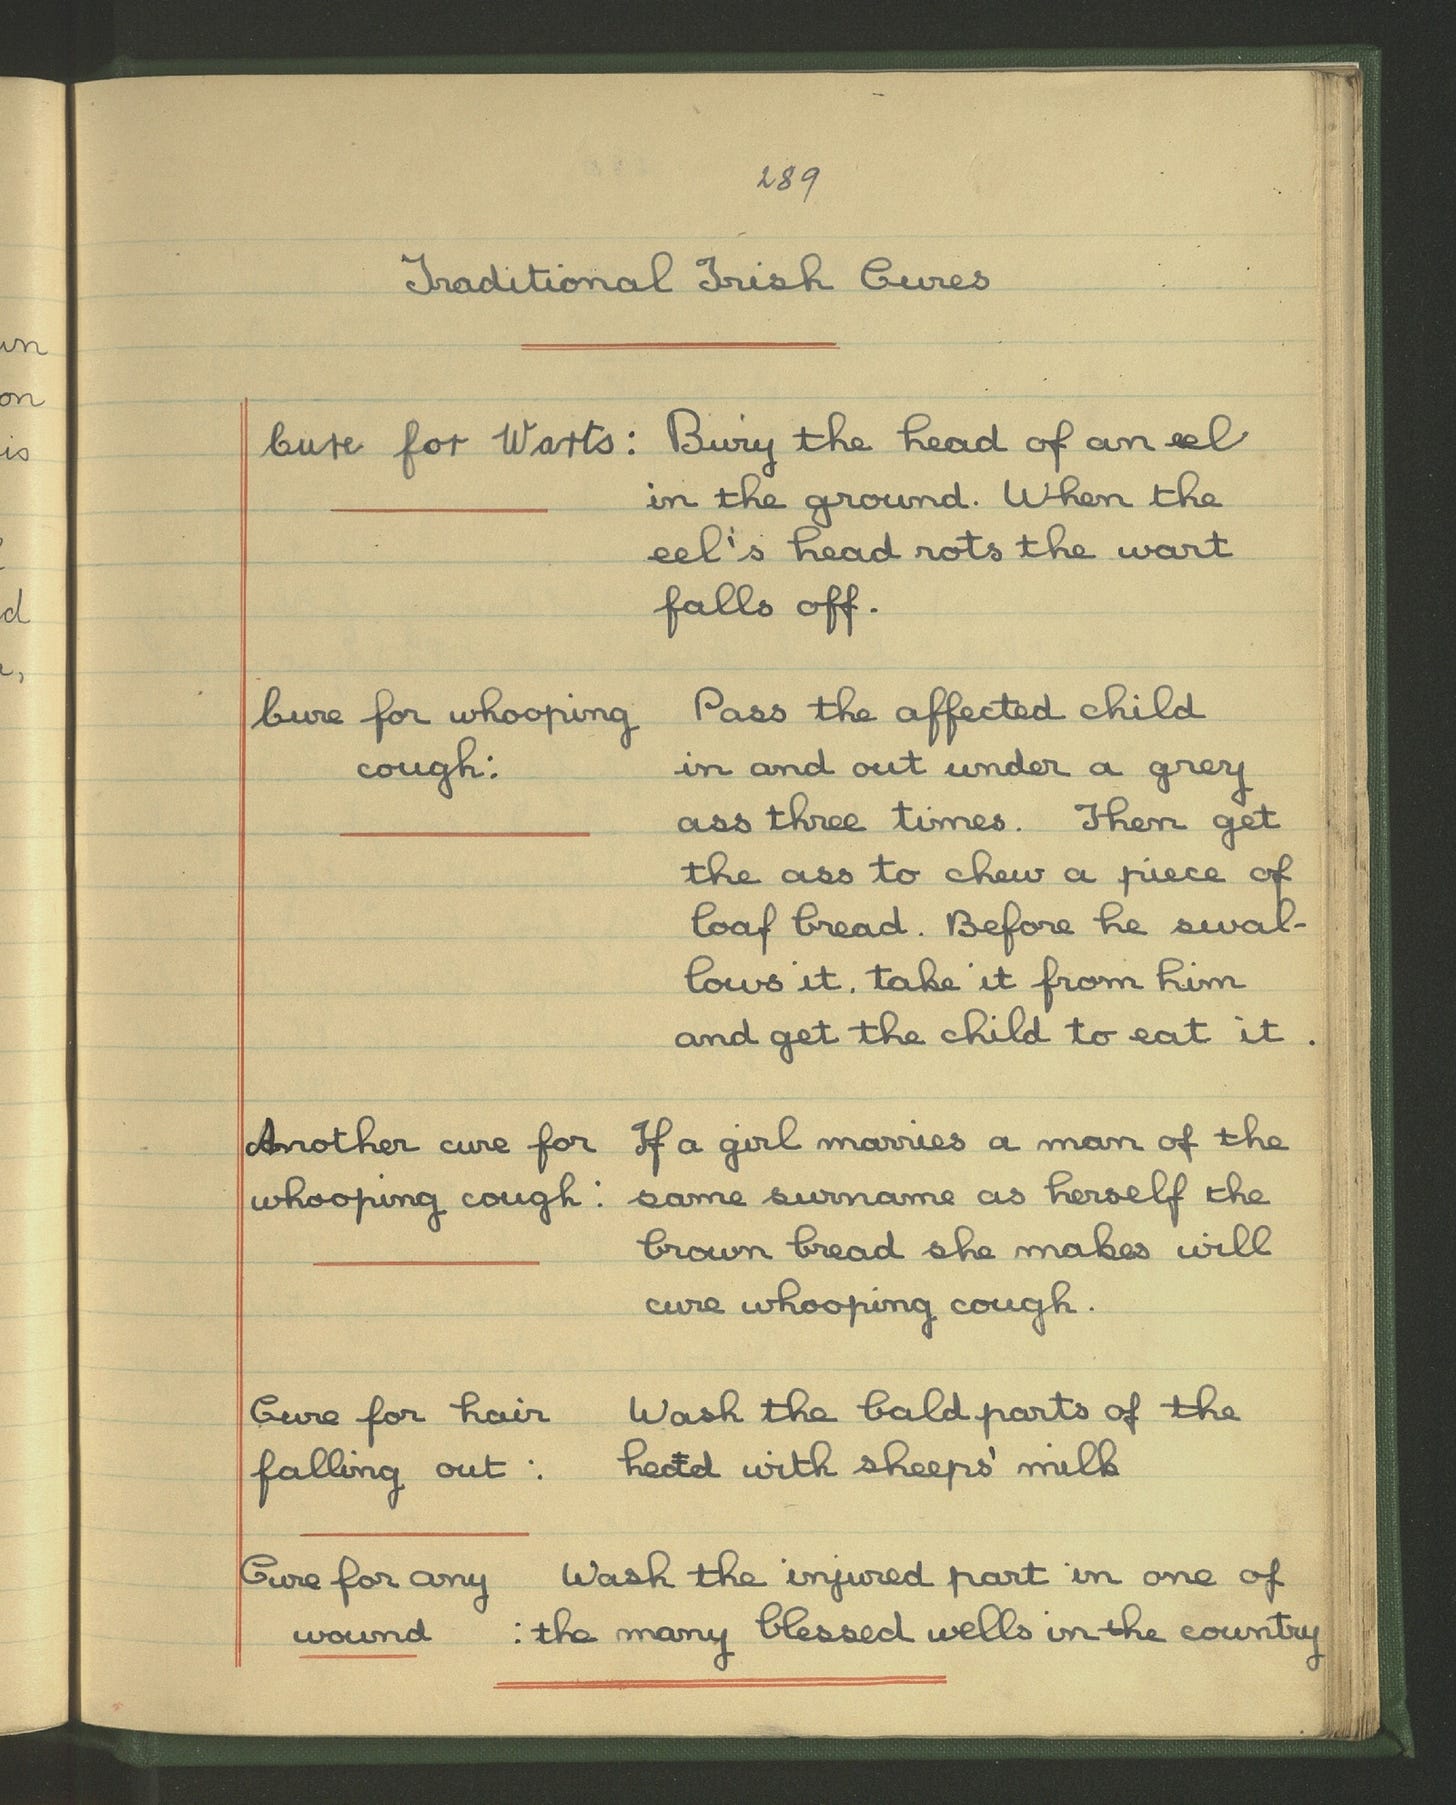 289
Traditional Irish Cures
Cure for Warts: Bury the head of an eel
in the ground. When the
eel's head rots the wart
falls off.
Cure for whooping Pass the affected child
cough: in and out under a grey
ass three times. Then get
the ass to chew a piece of
loaf bread. Before he swal-
lows it, take it from him
and get the child to eat it.
Another cure for If a girl marries a man of the
whooping cough: same surname as herself the
brown bread she makes will
cure whooping cough.
Cure for hair Wash the bald parts of the
falling out: head with sheeps' milk
Cure for any Wash the injured part in one of
wound : the many blessed wells in the country
un
on
is
d